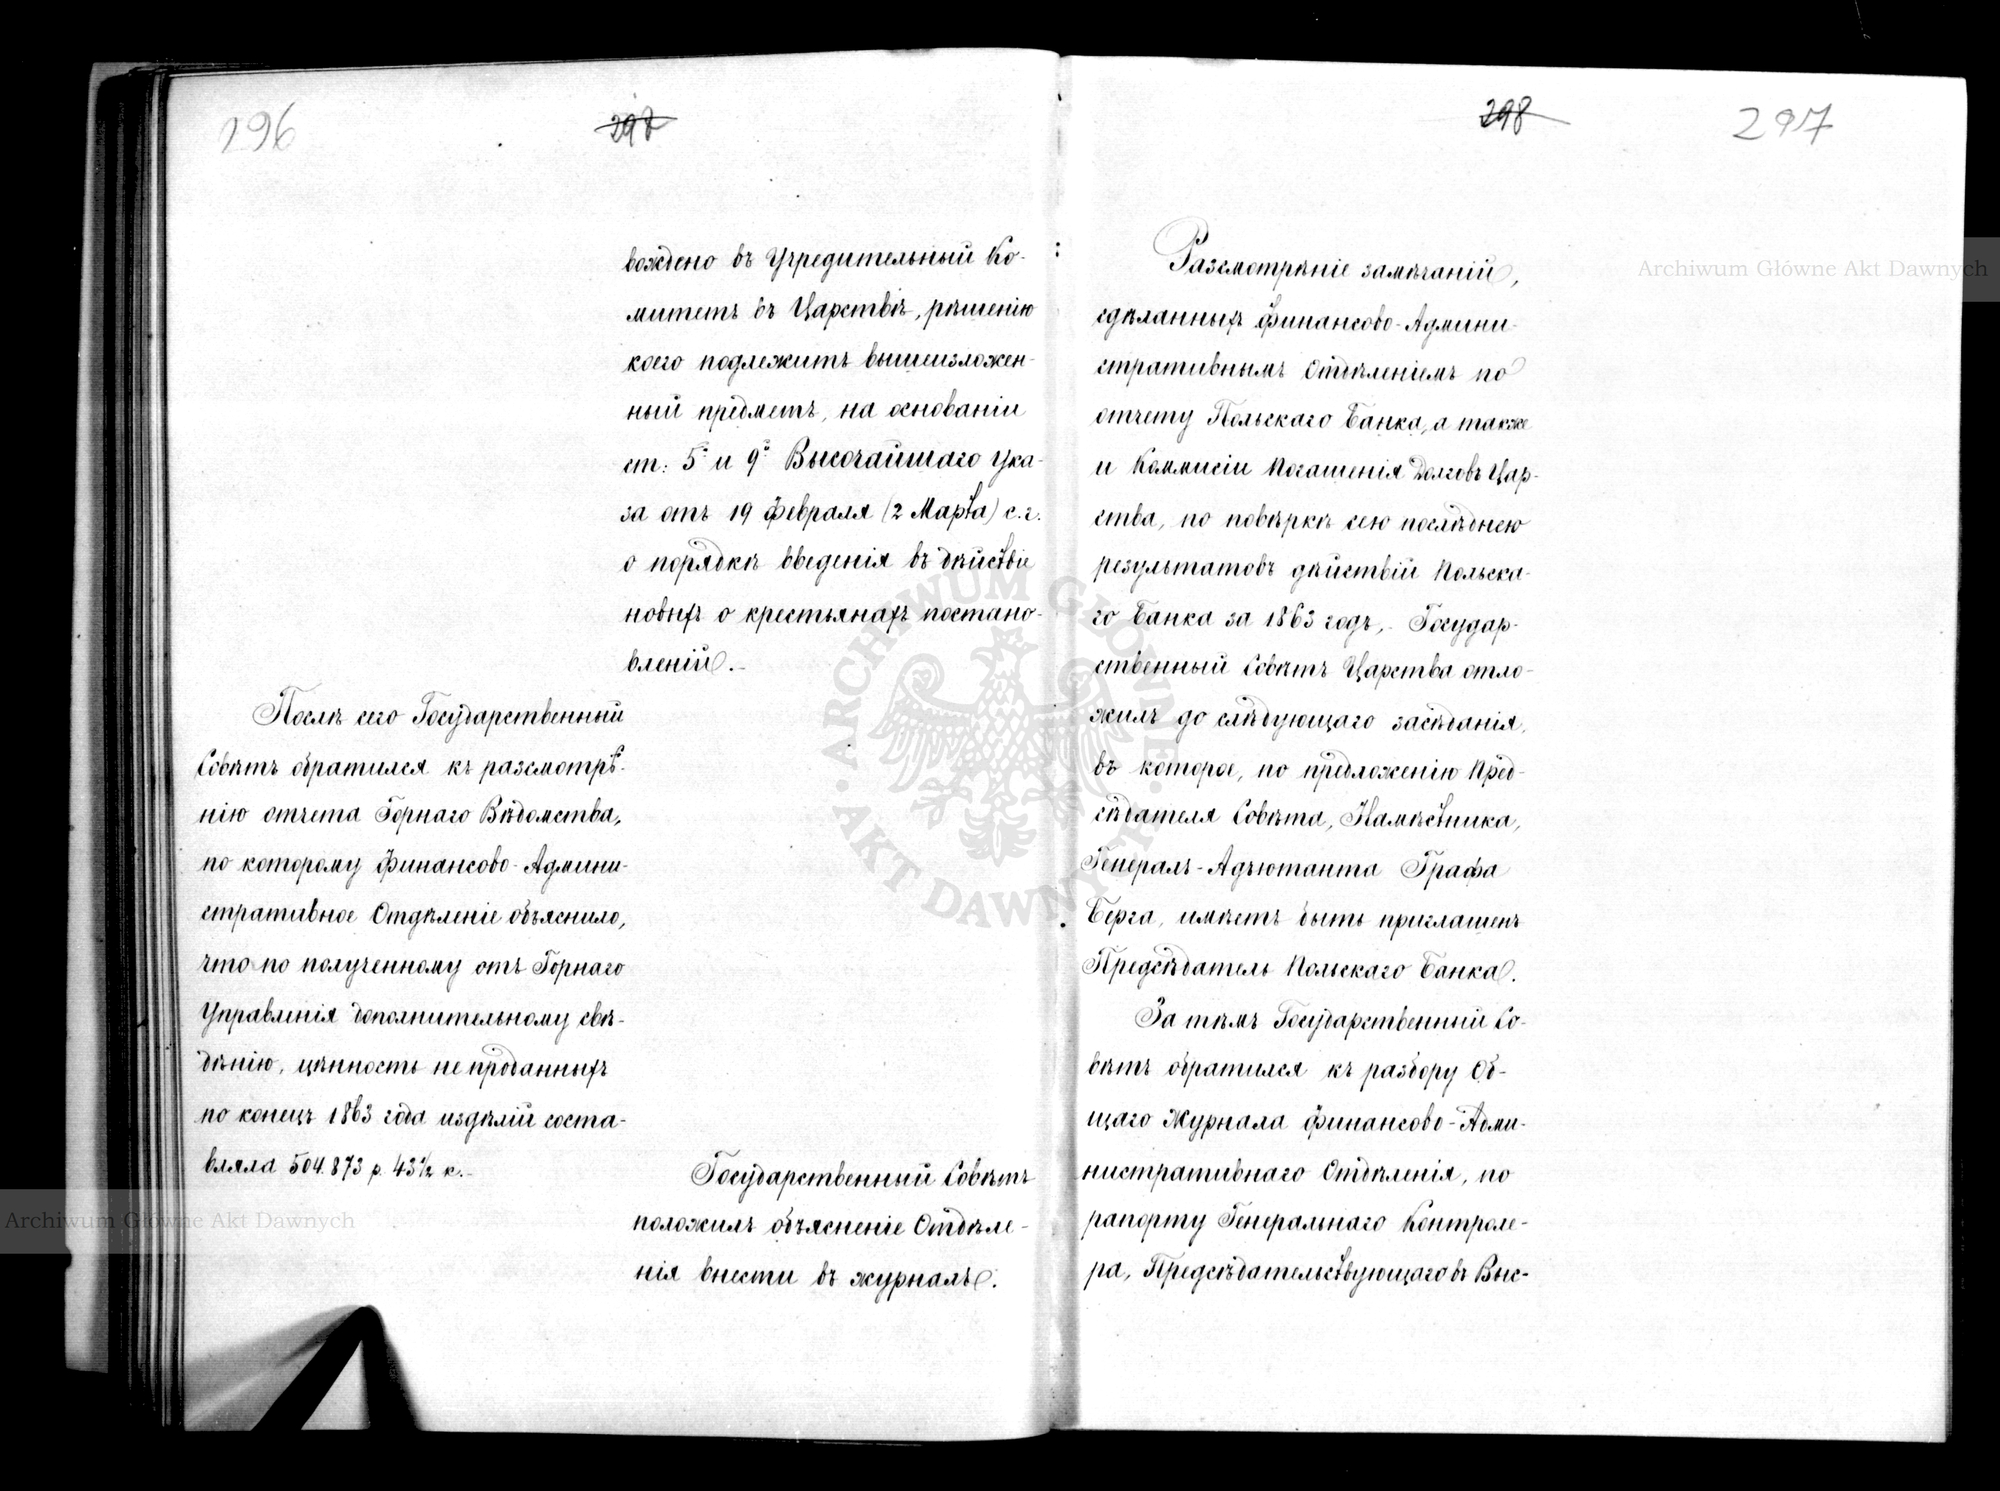 196
297
вождено въ Учредительный Ко-
митетъ въ Царствѣ, рѣшенію
коего подлежитъ вышеизложен-
ный предметъ, на основаніи
ст: 5й и 9й Высочайшаго Ука-
за отъ 19 Февраля (2 Марта) с.г.
о порядкѣ введенія въ дѣйствіе
новыхъ о крестьянахъ постано-
вленій.-
Послѣ сего Государственный
Совѣтъ обратился къ разсмотрѣ-
нію отчета Горнаго Вѣдомства,
по которому Финансово-Админи-
стративное Отдѣленіе объяснило,
что по полученному отъ Горнаго
Управленія дополнительному свѣ-
дѣнію, цѣнность не проданныхъ
по конецъ 1863 года издѣлій соста-
вляла 504.873 р. 43½ к.-
Государственный Совѣтъ
положилъ объясненіе Отдѣле-
нія внести въ журналъ.
298
297
Разсмотрѣніе замѣчаній,
сдѣланныхъ Финансово-Админи-
стративнымъ Отдѣленіемъ по
отчету Польскаго Банка, а также
и Коммисіи Погашенія Долговъ Цар-
ства, по повѣркѣ сею послѣднею
результатовъ дѣйствій Польска-
го Банка за 1863 годъ,- Государ-
ственный Совѣтъ Царства отло-
жилъ до слѣдующаго засѣданія,
въ которое, по предложенію Пред-
сѣдателя Совѣта, Намѣстника,
Генералъ-Адъютанта Графа
Берга, имѣетъ быть приглашенъ
Предсѣдатель Польскаго Банка.
За тѣмъ Государственный Со-
вѣтъ обратился къ разбору Об-
щаго Журнала Финансово-Адми-
нистративнаго Отдѣленія, по
рапорту Генеральнаго Контроле-
ра, Предсѣдательствующаго въ Выс-
Archiwum Główne Akt Dawnych
Archiwum Główne Akt Dawnych
ARCHIWUM GŁÓWNE · AKT DAWNYCH ·